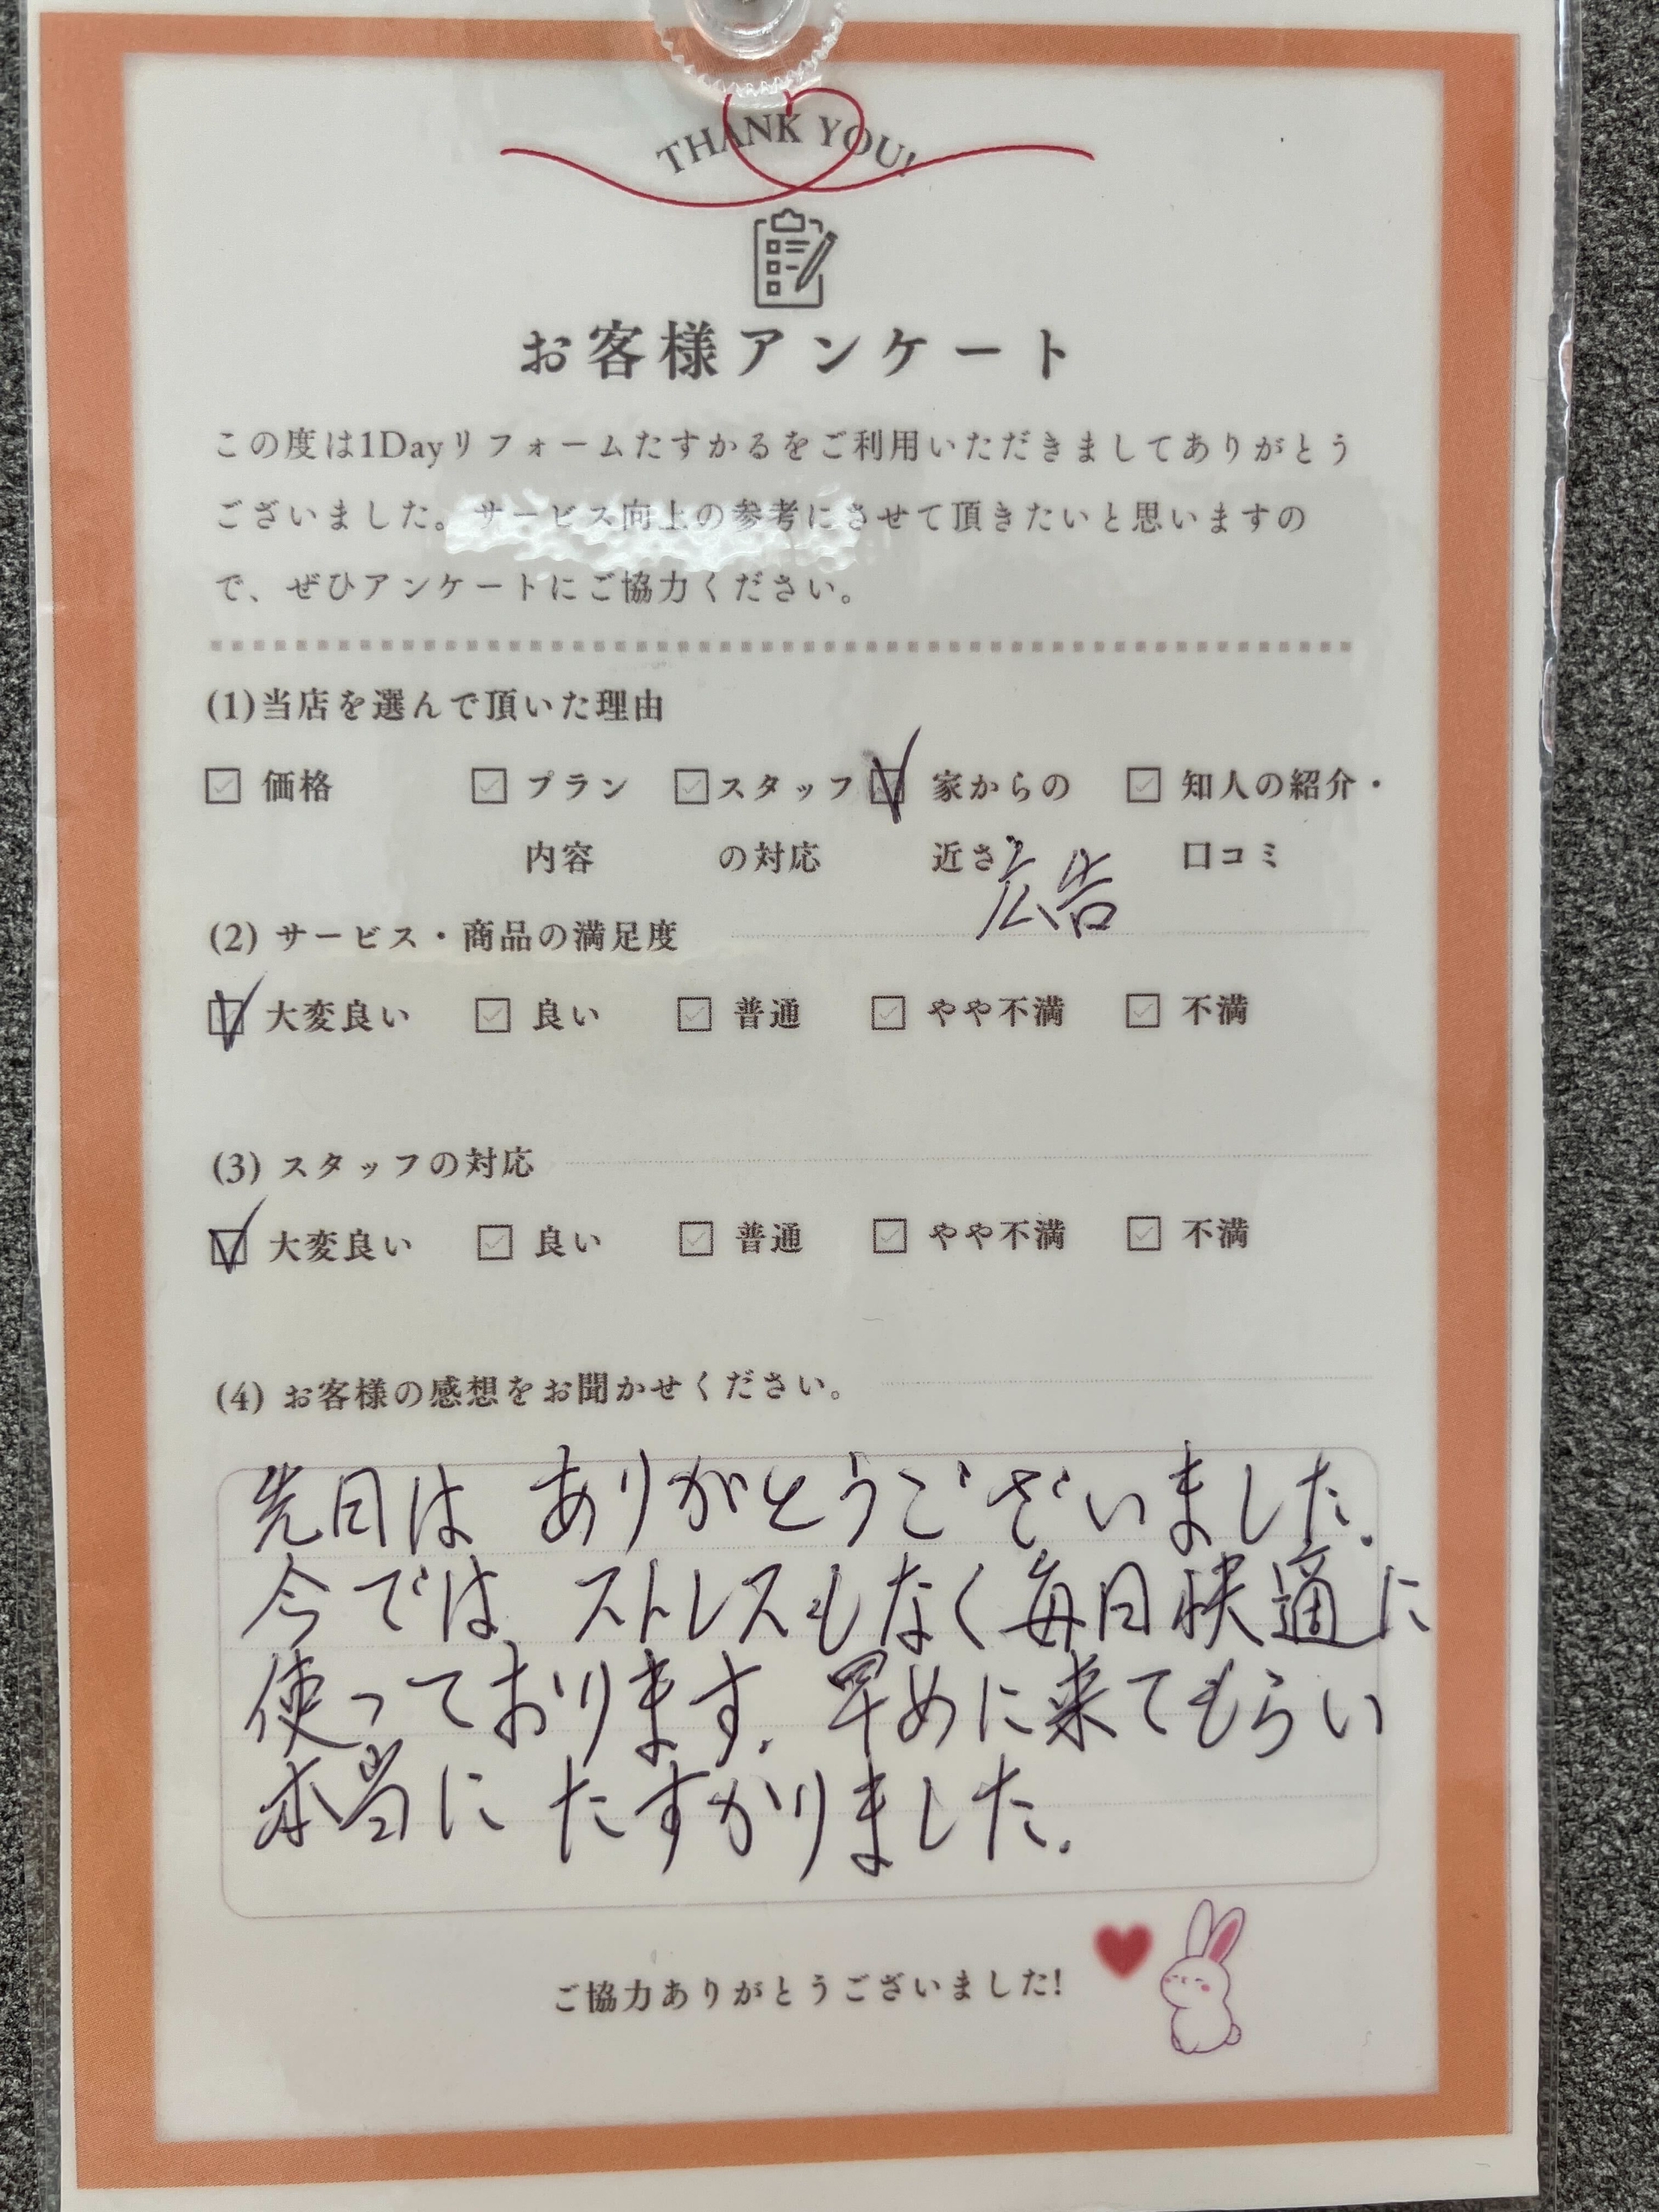 THANK YOU!
お客様アンケート
この度は1Dayリフォームたすかるをご利用いただきましてありがとう
ございました。サービス向上の参考にさせて頂きたいと思いますの
で、ぜひアンケートにご協力ください。
(1)当店を選んで頂いた理由
価格 プラン スタッフ 家からの 知人の紹介・
内容 の対応 近さ 口コミ
広告
(2) サービス・商品の満足度
大変良い 良い 普通 やや不満 不満
(3) スタッフの対応
大変良い 良い 普通 やや不満 不満
(4) お客様の感想をお聞かせください。
先日は ありがとうございました.
今では ストレスもなく毎日快適に
使っております. 早めに来てもらい
本当に たすかりました.
ご協力ありがとうございました!